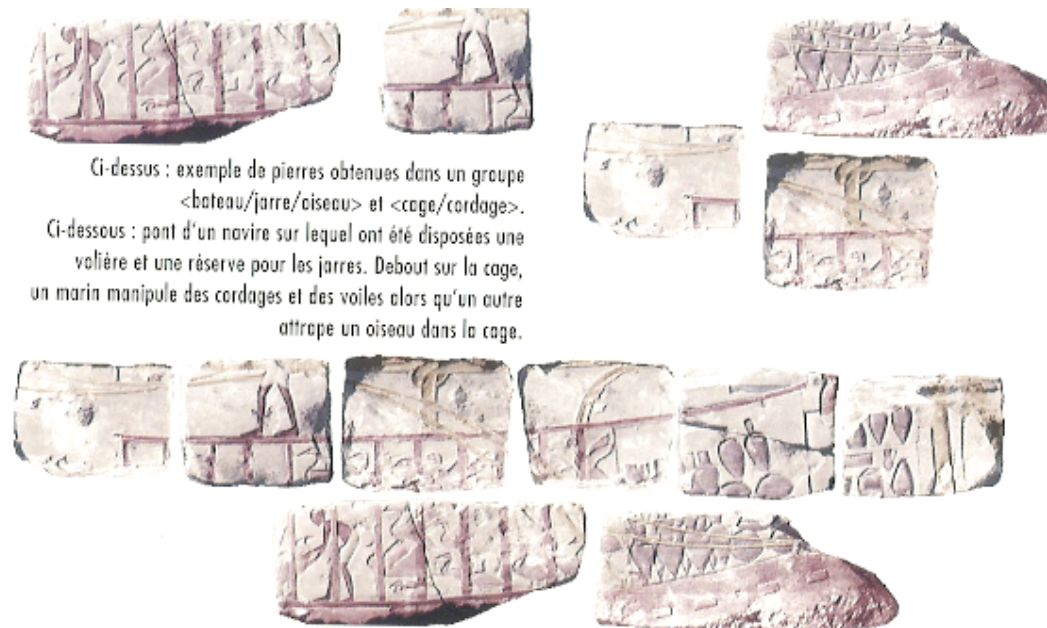 Ci-dessus : exemple de pierres obtenues dans un groupe
<bateau/jarre/oiseau> et <cage/cordage>.
Ci-dessous : pont d'un navire sur lequel ont été disposées une
volière et une réserve pour les jarres. Debout sur la cage,
un marin manipule des cordages et des voiles alors qu'un autre
attrape un oiseau dans la cage.